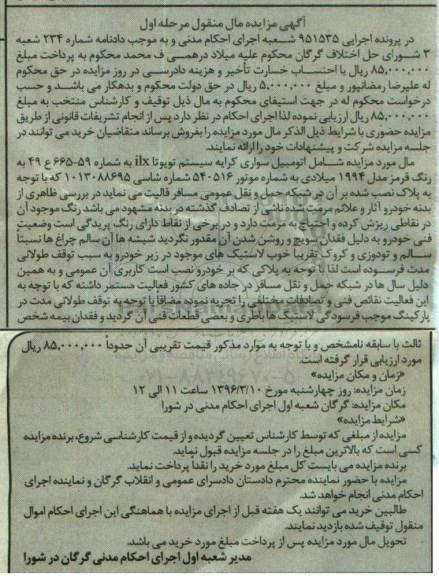 آگهی مزایده مال منقول مرحله اول
در پرونده اجرایی ۹۵۱۵۳۵ شعبه اجرای احکام مدنی و به موجب دادنامه شماره ۲۳۴ شعبه
۳ شورای حل اختلاف گرگان محکوم علیه میلاد درهمی ف محمد محکوم به پرداخت مبلغ
۸۵,۰۰۰,۰۰۰ ریال با احتساب خسارت تأخیر و هزینه دادرسی در روز مزایده در حق محکوم
له علیرضا رمضانپور و مبلغ ۵,۰۰۰,۰۰۰ ریال در حق دولت محکوم و بدهکار می باشد و حسب
درخواست محکوم له در جهت استیفای محکوم به مال ذیل توقیف و کارشناس منتخب به مبلغ
۸۵,۰۰۰,۰۰۰ ریال ارزیابی نموده لذا اجرای احکام در نظر دارد پس از انجام تشریفات قانونی از طریق
مزایده حضوری با شرایط ذیل الذکر مال مورد مزایده را بفروش برساند متقاضیان خرید می توانند در
جلسه مزایده شرکت و پیشنهادات خود را ارائه نمایند.
مال مورد مزایده شامل اتومبیل سواری کرایه سیستم تویوتا ilx به شماره ۵۹-۶۶۵ ع ۴۹ به
رنگ قرمز مدل ۱۹۹۴ میلادی به شماره موتور ۵۴۰۵۱۶ شماره شاسی ۱۰۱۳۰۸۸۶۹۵ که با توجه
به پلاک نصب شده بر آن در شبکه حمل و نقل عمومی مسافر فالیت می نماید در بررسی ظاهری از
بدنه خودرو آثار و علائم مرمت شده ناشی از تصادف گذشته در بدنه مشهود می باشد رنگ موجود آن
در نقاطی ریزش کرده و احتیاج به مرمت دارد و در برخی از نقاط دارای رنگ پریدگی است وضعیت
فنی خودرو به دلیل فقدان سویچ و روشن شدن آن مقدور نگردید شیشه ها آن سالم چراغ ها نسبتاً
سالم و تودوزی و کروک تقریبا خوب لاستیک های موجود در زیر خودرو به سبب توقف طولانی
مدت فرسوده است لذا با توجه به پلاکی که بر خودرو نصب است کاربری آن عمومی و به همین
دلیل سال ها در شبکه حمل و نقل مسافر در جاده های کشور فعالیت مستمر داشته که با توجه به
این فعالیت نقائص فنی و تصادفات مختلفی را تجربه نموده مضافا با توجه به توقف طولانی مدت در
پارکینگ موجب فرسودگی لاستیک ها باطری و بعضی قطعات فنی آن گردید و فقدان بیمه شخص
ثالث با سابقه نامشخص و با توجه به موارد مذکور قیمت تقریبی آن حدوداً ۸۵,۰۰۰,۰۰۰ ریال
مورد ارزیابی قرار گرفته است.
«زمان و مکان مزایده»
زمان مزایده: روز چهارشنبه مورخ ۱۳۹۶/۳/۱۰ ساعت ۱۱ الی ۱۲
مکان مزایده: گرگان شعبه اول اجرای احکام مدنی در شورا
«شرایط مزایده»
مزایده از مبلغی که توسط کارشناس تعیین گردیده و از قیمت کارشناسی شروع، برنده مزایده
کسی است که بالاترین مبلغ را در جلسه مزایده قبول نماید.
برنده مزایده می بایست کل مبلغ مورد خرید را نقدا پرداخت نماید.
مزایده با حضور نماینده محترم دادستان دادسرای عمومی و انقلاب گرگان و نماینده اجرای
احکام مدنی انجام خواهد شد.
طالبین خرید می توانند یک هفته قبل از اجرای مزایده با هماهنگی این اجرای احکام اموال
منقول توقیف شده بازدید نمایند.
تحویل مال مورد مزایده پس از پرداخت مبلغ مورد خرید می باشد.
مدیر شعبه اول اجرای احکام مدنی گرگان در شورا